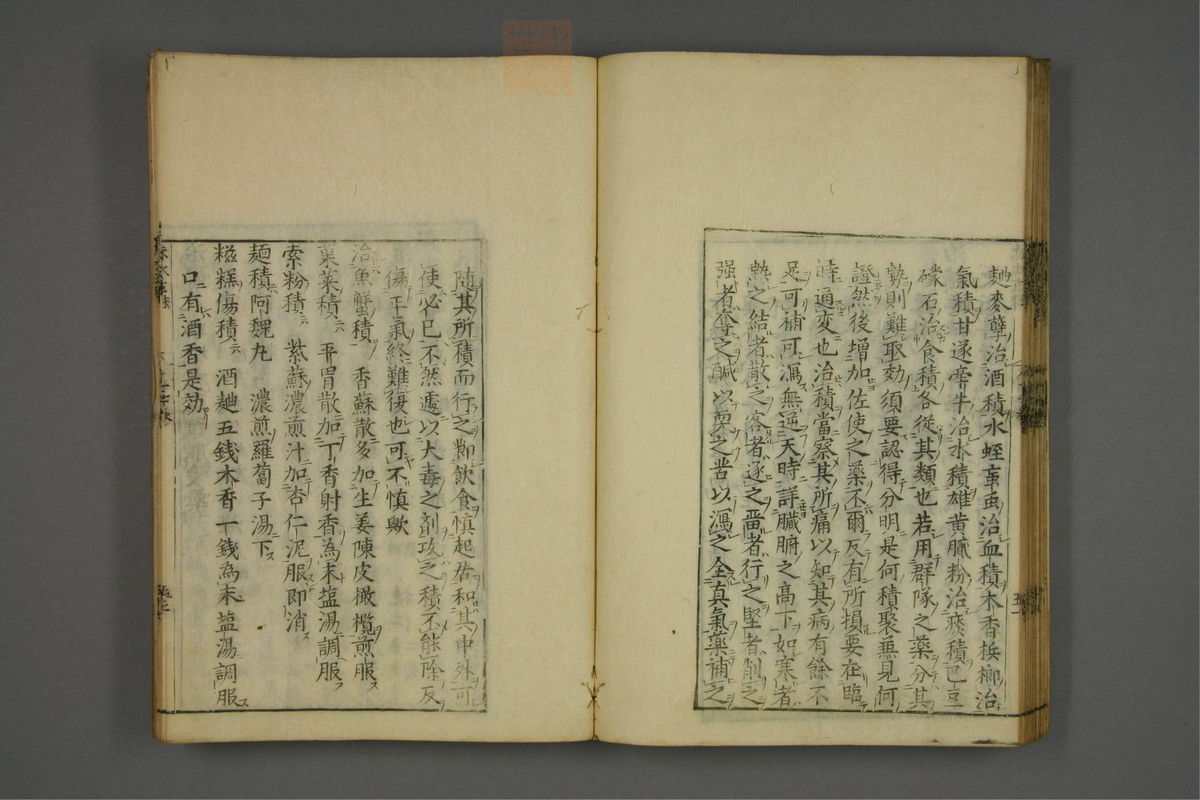 麯麥蘗治酒積水蛭䖟虫治血積木香梹榔治
氣積甘遂牽牛治水積雄黄膩粉治痰積巴豆
礞石治食積各從其類也若用群隊之藥分其
勢則難取効須要認得分明是何積聚兼見何
證然後増加佐使之藥不爾反有所損要在臨
時通變也治積當察其所痛以知其病有餘不
足可補可瀉無逆天時詳臟腑之高下如寒者
熱之結者散之客者逐之畱者行之堅者削之
强者奪之醎以耎之苦以瀉之全真氣藥補之
随其所積而行之節飲食慎起居和其中外可
使必已不然遽以大毒之劑攻之積不能除反
傷平氣終難復也可不慎歟
治魚蟹積 香蘇散多加生姜陳皮橄欖煎服
菓菜積 平胃散加丁香射香為末塩湯調服
索粉積 紫蘇濃煎汁加杏仁泥服即消
麺積阿魏丸 濃煎羅蔔子湯下
糍糕傷積 酒麯五銭木香一銭為末塩湯調服
口有酒香是効